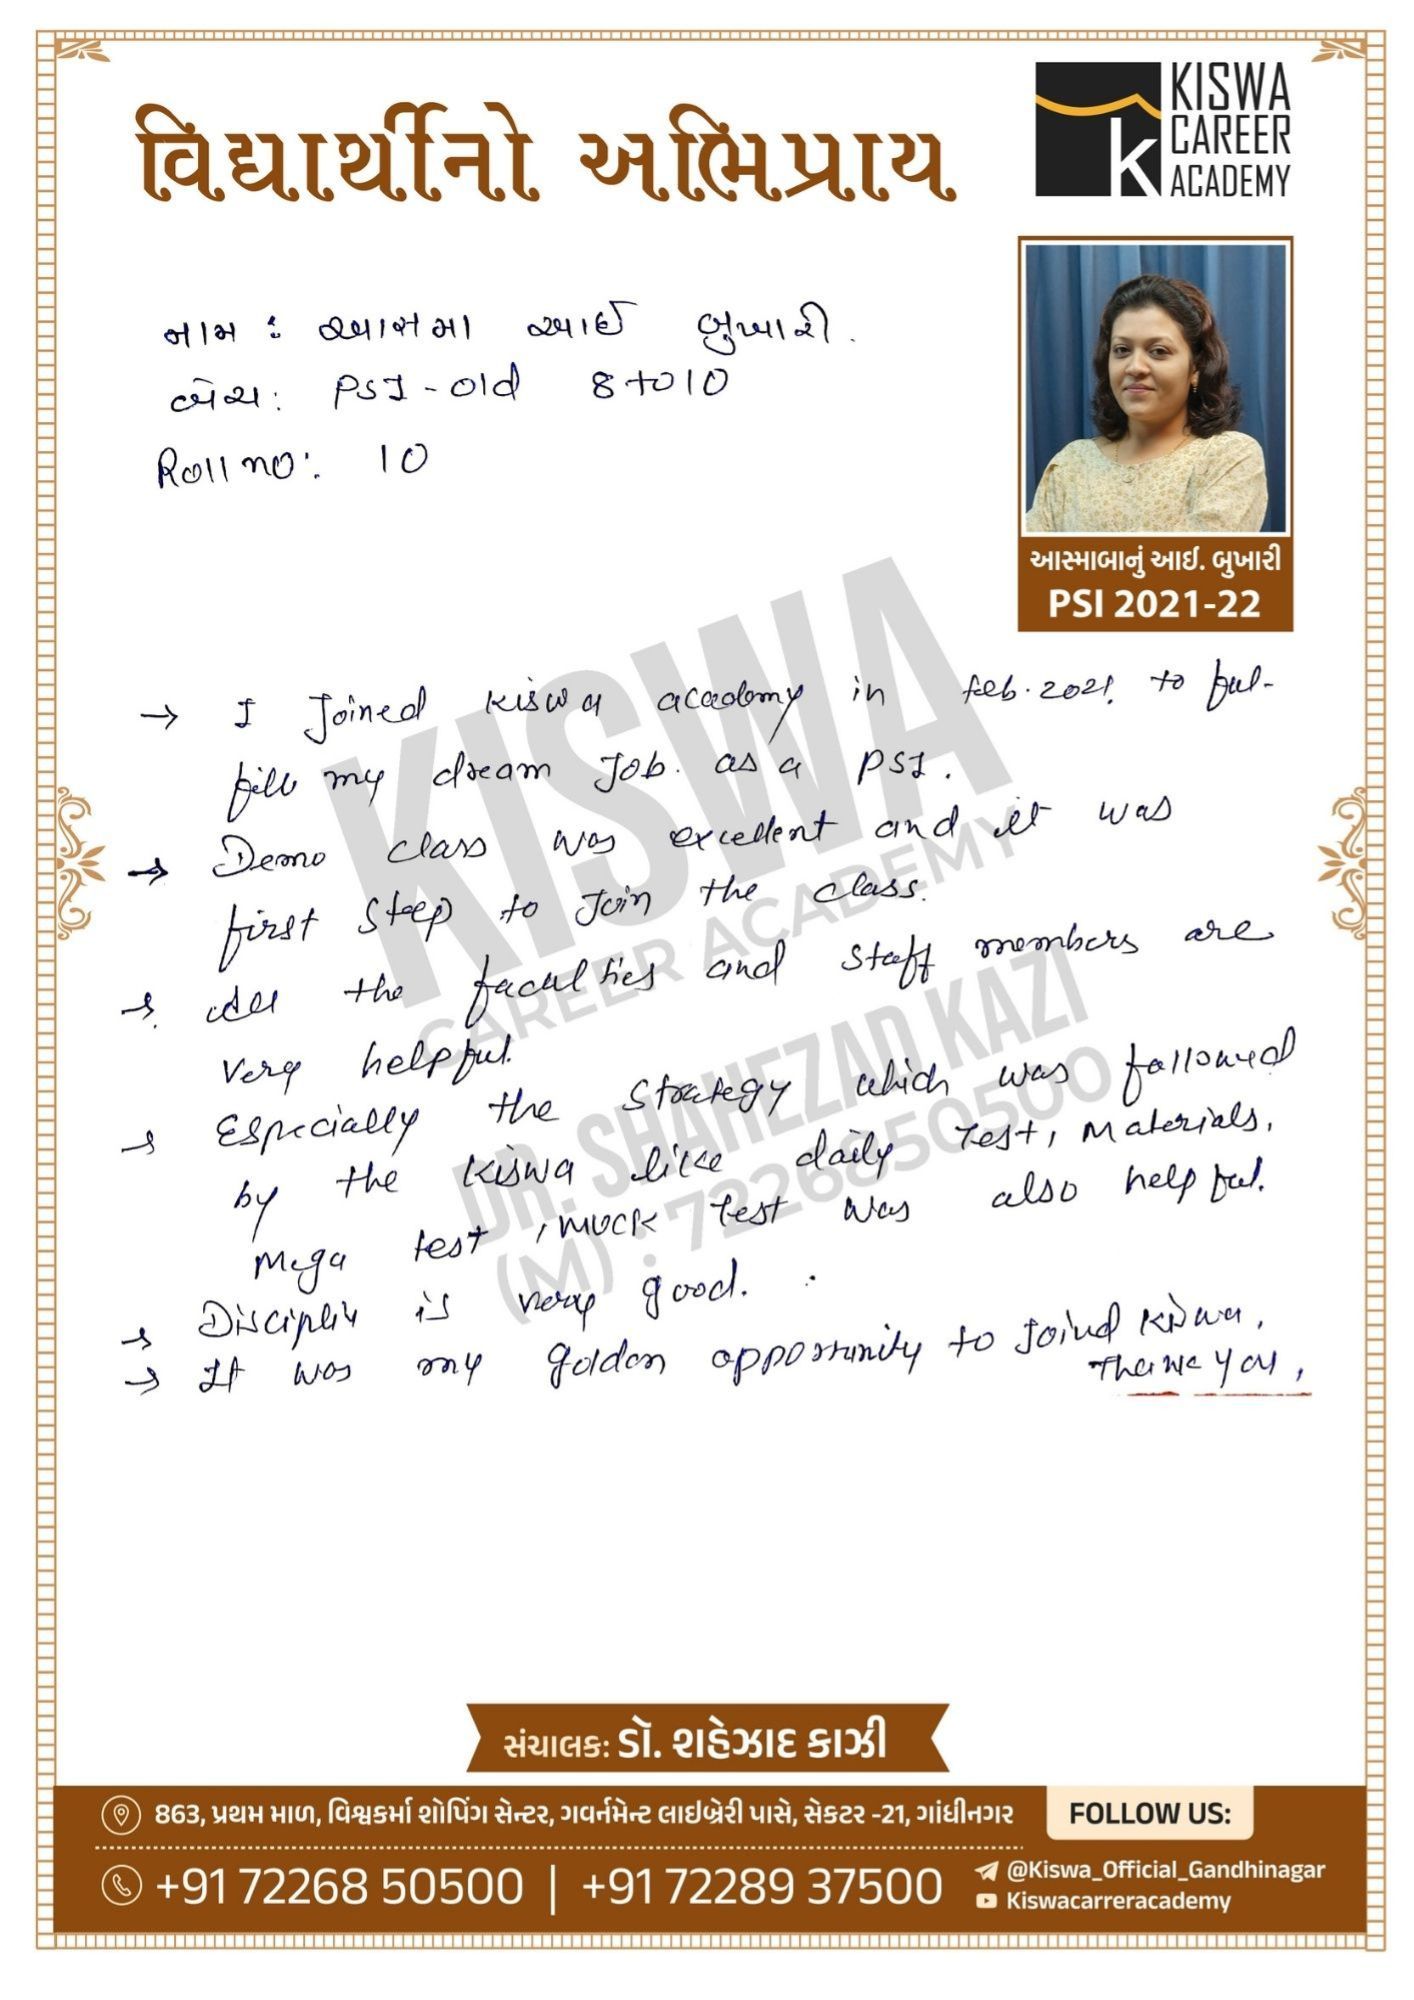 વિદ્યાર્થીનો અભિપ્રાય
KISWA
CAREER
ACADEMY
k
નામ : આસમા આઈ બુખારી.
બેચ: PSI - old 8 to 10
Roll no: 10
આસ્માબાનું આઈ. બુખારી
PSI 2021-22
→ I Joined Kiswa academy in feb. 2021. to ful-
fill my dream Job. as a PSI.
→ Demo class was excellent and it was
first Steep to Join the class.
→ All the faculties and staff members are
very helpful.
→ Especially the Strategy which was followed
by the Kiswa like daily Test, Materials,
Mega test, muck test was also helpful.
→ Disciplin is very good.
→ It was my golden opportunity to Joind Kiswa.
Thank You,
KISWA
CAREER ACADEMY
DR. SHAHEZAD KAZI
(M) : 7226850500
સંચાલક: ડૉ. શહેઝાદ કાઝી
863, પ્રથમ માળ, વિશ્વકર્મા શોપિંગ સેન્ટર, ગવર્નમેન્ટ લાઇબ્રેરી પાસે, સેક્ટર -21, ગાંધીનગર
FOLLOW US:
+91 72268 50500 | +91 72289 37500
@Kiswa_Official_Gandhinagar
Kiswacarreracademy